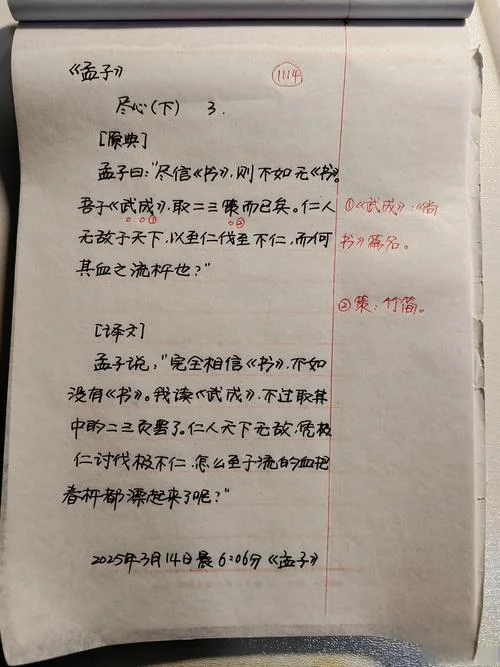 《孟子》 1114
尽心(下) 3.
[原典]
孟子曰:"尽信《书》,则不如无《书》。
吾于《武成》,取二三策而已矣。仁人
①《武成》:《尚
无敌于天下,以至仁伐至不仁,而何
书》篇名。
其血之流杵也?"
②策:竹简。
[译文]
孟子说:"完全相信《书》,不如
没有《书》。我读《武成》,不过取其
中的二三页罢了。仁人天下无敌,凭极
仁讨伐极不仁,怎么至于流的血把
舂杵都漂起来了呢?"
2025年3月14日晨6:06分《孟子》